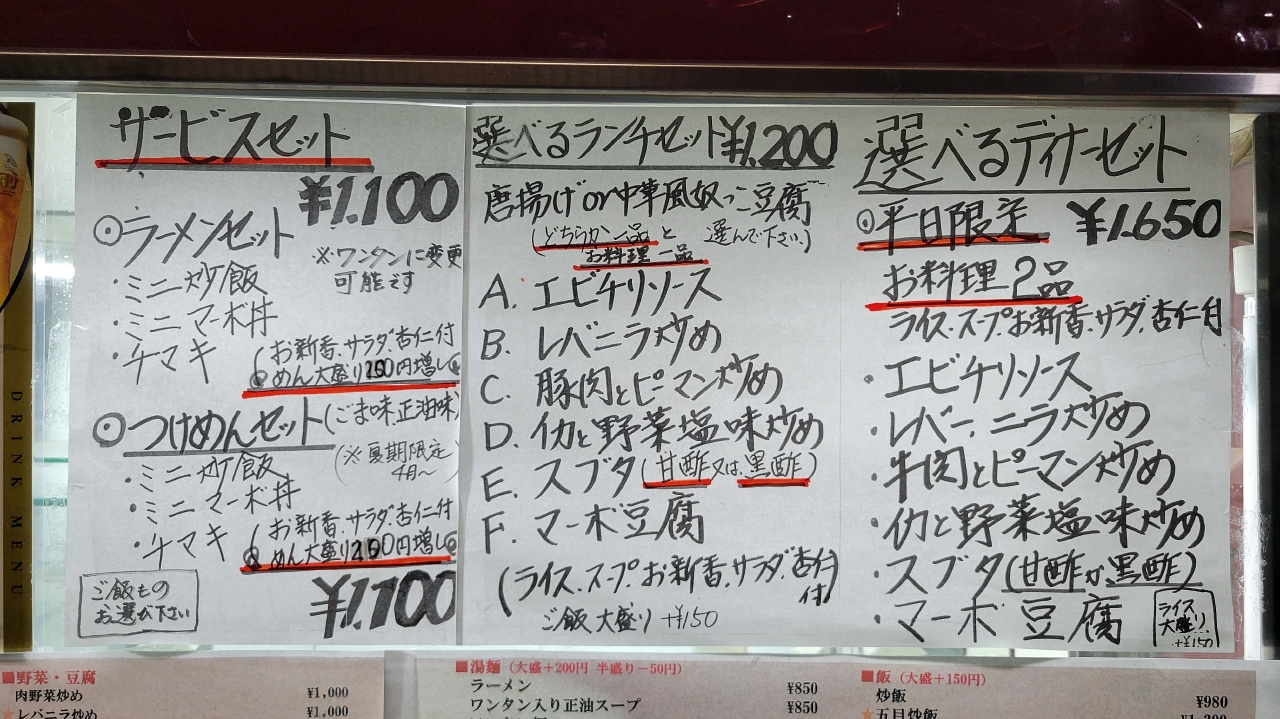 サービスセット
¥1.100
◎ラーメンセット
※ワンタンに変更
可能です
・ミニ炒飯
・ミニマーボ丼
・チマキ
(お新香.サラダ.杏仁付
めん大盛り200円増し
◎つけめんセット(ごま味.正油味)
(※夏期限定
4月〜
・ミニ炒飯
・ミニマーボ丼
・チマキ
(お新香.サラダ.杏仁付
めん大盛り200円増し
ご飯もの
お選び下さい
¥1.100
選べるランチセット¥1.200
唐揚げor中華風奴っこ豆腐
(どちらか一品と 選んで下さい.)
お料理一品
A. エビチリソース
B. レバニラ炒め
C. 豚肉とピーマン炒め
D. イカと野菜塩味炒め
E. スブタ(甘酢又は黒酢)
F. マーボ豆腐
(ライス.スープ.お新香.サラダ.杏仁
付)
ご飯大盛り+¥150
選べるディナーセット
◎平日限定 ¥1.650
お料理2品
ライス.スープ.お新香.サラダ.杏仁付
・エビチリソース
・レバー.ニラ炒め
・牛肉とピーマン炒め
・イカと野菜塩味炒め
・スブタ(甘酢か黒酢)
・マーボ豆腐
ライス
大盛り
+¥150
DRINK MENU
■野菜・豆腐
肉野菜炒め ¥1,000
★レバニラ炒め ¥1,000
■湯麺(大盛+200円 半盛り−50円)
ラーメン ¥850
ワンタン入り正油スープ ¥850
■飯(大盛+150円)
炒飯 ¥980
★五目炒飯